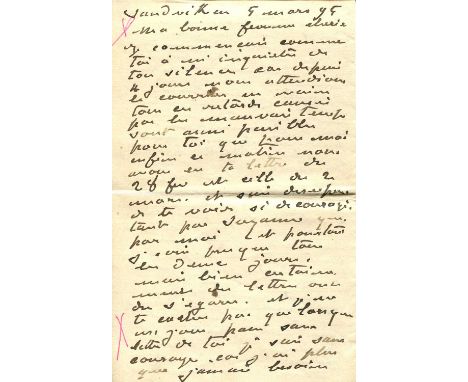 Sandviken 5 mars 95
Ma bonne femme cherie
je commencais comme
toi à m'inquieter de
ton silence car depuis
4 jours nous attendions
le courrier en vain
tous ces retards causés
par les mauvais temps
sont aussi penibles
pour toi que pour moi
enfin ce matin nous
avons eu ta lettre du
28 fev et celle du 2
mars. et suis desespere
de te voir si decouragé
tant par Suzanne que
par moi et pourtant
j'ecris presque tous
les jours.
mais bien certaine
ment des lettres ont
du s'egarer. et je ne
te cache pas que lorsque
un jour passe sans
lettre de toi je suis sans
courage car j'ai plus
que jamais besoin